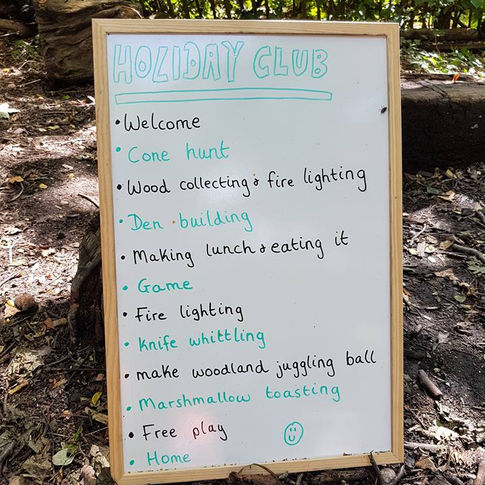 HOLIDAY CLUB
• Welcome
• Cone hunt
• Wood collecting & fire lighting
• Den building
• Making lunch & eating it
• Game
• Fire lighting
• Knife whittling
• make woodland juggling ball
• Marshmallow toasting
• Free play
• Home